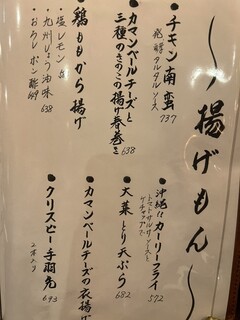 〜揚げもん〜
・チキン南蛮
発酵タルタルソース
737
・カマンベールチーズと
三種のきのこの揚げ春巻き 638
・鶏ももから揚げ
・塩レモン
・九州しょう油味 638
・おろしポン酢
・沖縄カーリーフライ
トマトサルサソースと
ケチャップで 572
・大葉とり天ぷら
682
・カマンベールチーズの衣揚げ
・クリスピー手羽先
2本入り 693